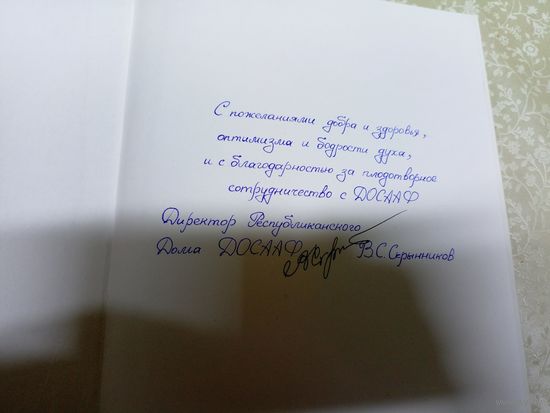 С пожеланиями добра и здоровья,
оптимизма и бодрости духа,
и с благодарностью за плодотворное
сотрудничество с ДОСААФ
Директор Республиканского
Дома ДОСААФ В.С. Скрынников